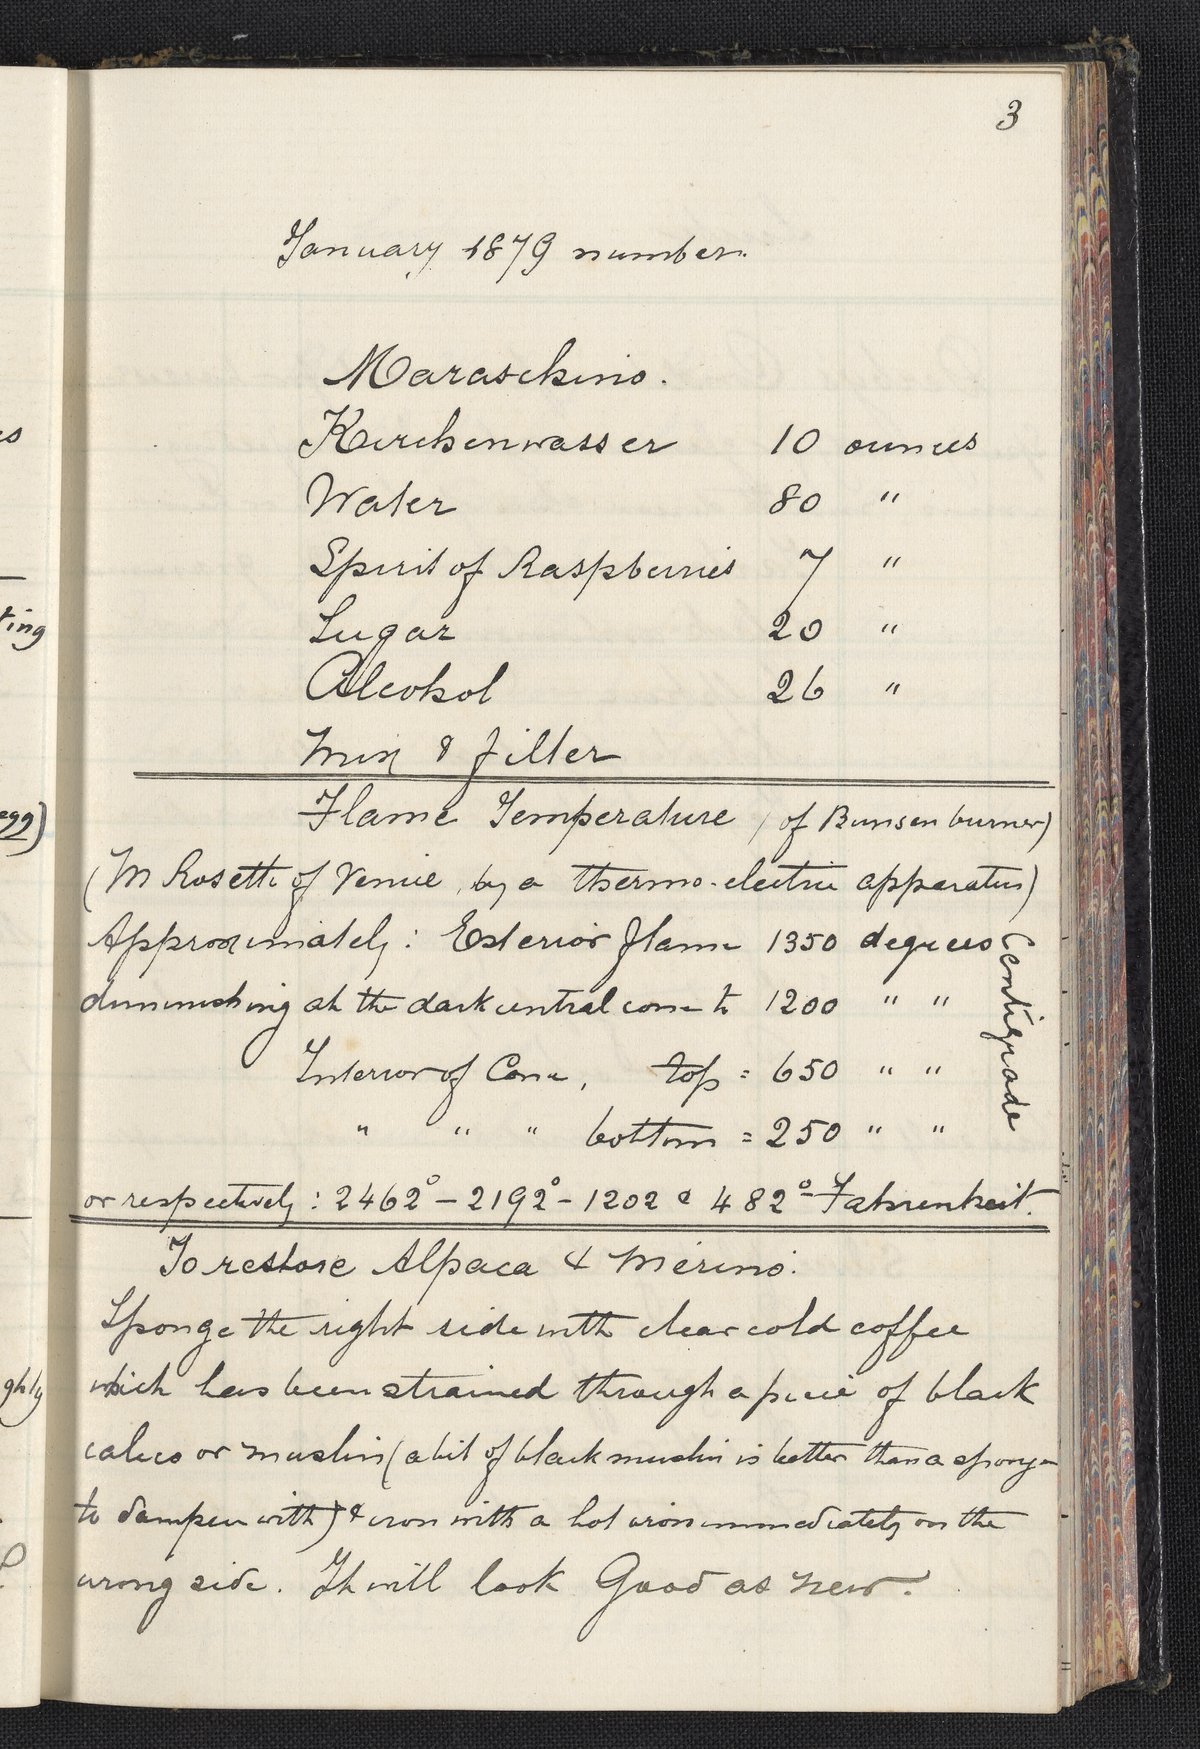 3
January 1879 number.
Maraschino.
Kirchenwasser 10 ounces
Water 80 "
Spirit of Raspberries 7 "
Sugar 20 "
Alcohol 26 "
Mix & filter
Flame Temperature (of Bunsen burner)
(M Rosetti of Venice by a thermo-electric apparatus)
Approximately: Exterior flame 1350 degrees Centigrade
diminishing at the dark central cone to 1200 " "
Interior of Cone, top = 650 " "
" " " bottom = 250 " "
or respectively: 2462° – 2192° – 1202 & 482° Fahrenheit.
To restore Alpaca & Merino.
Sponge the right side with clear cold coffee
which has been strained through a piece of black
calico or muslin (a bit of black muslin is better than a sponge
to dampen with) & iron with a hot iron immediately on the
wrong side. It will look Good as new.
es
ting
egg)
ghly